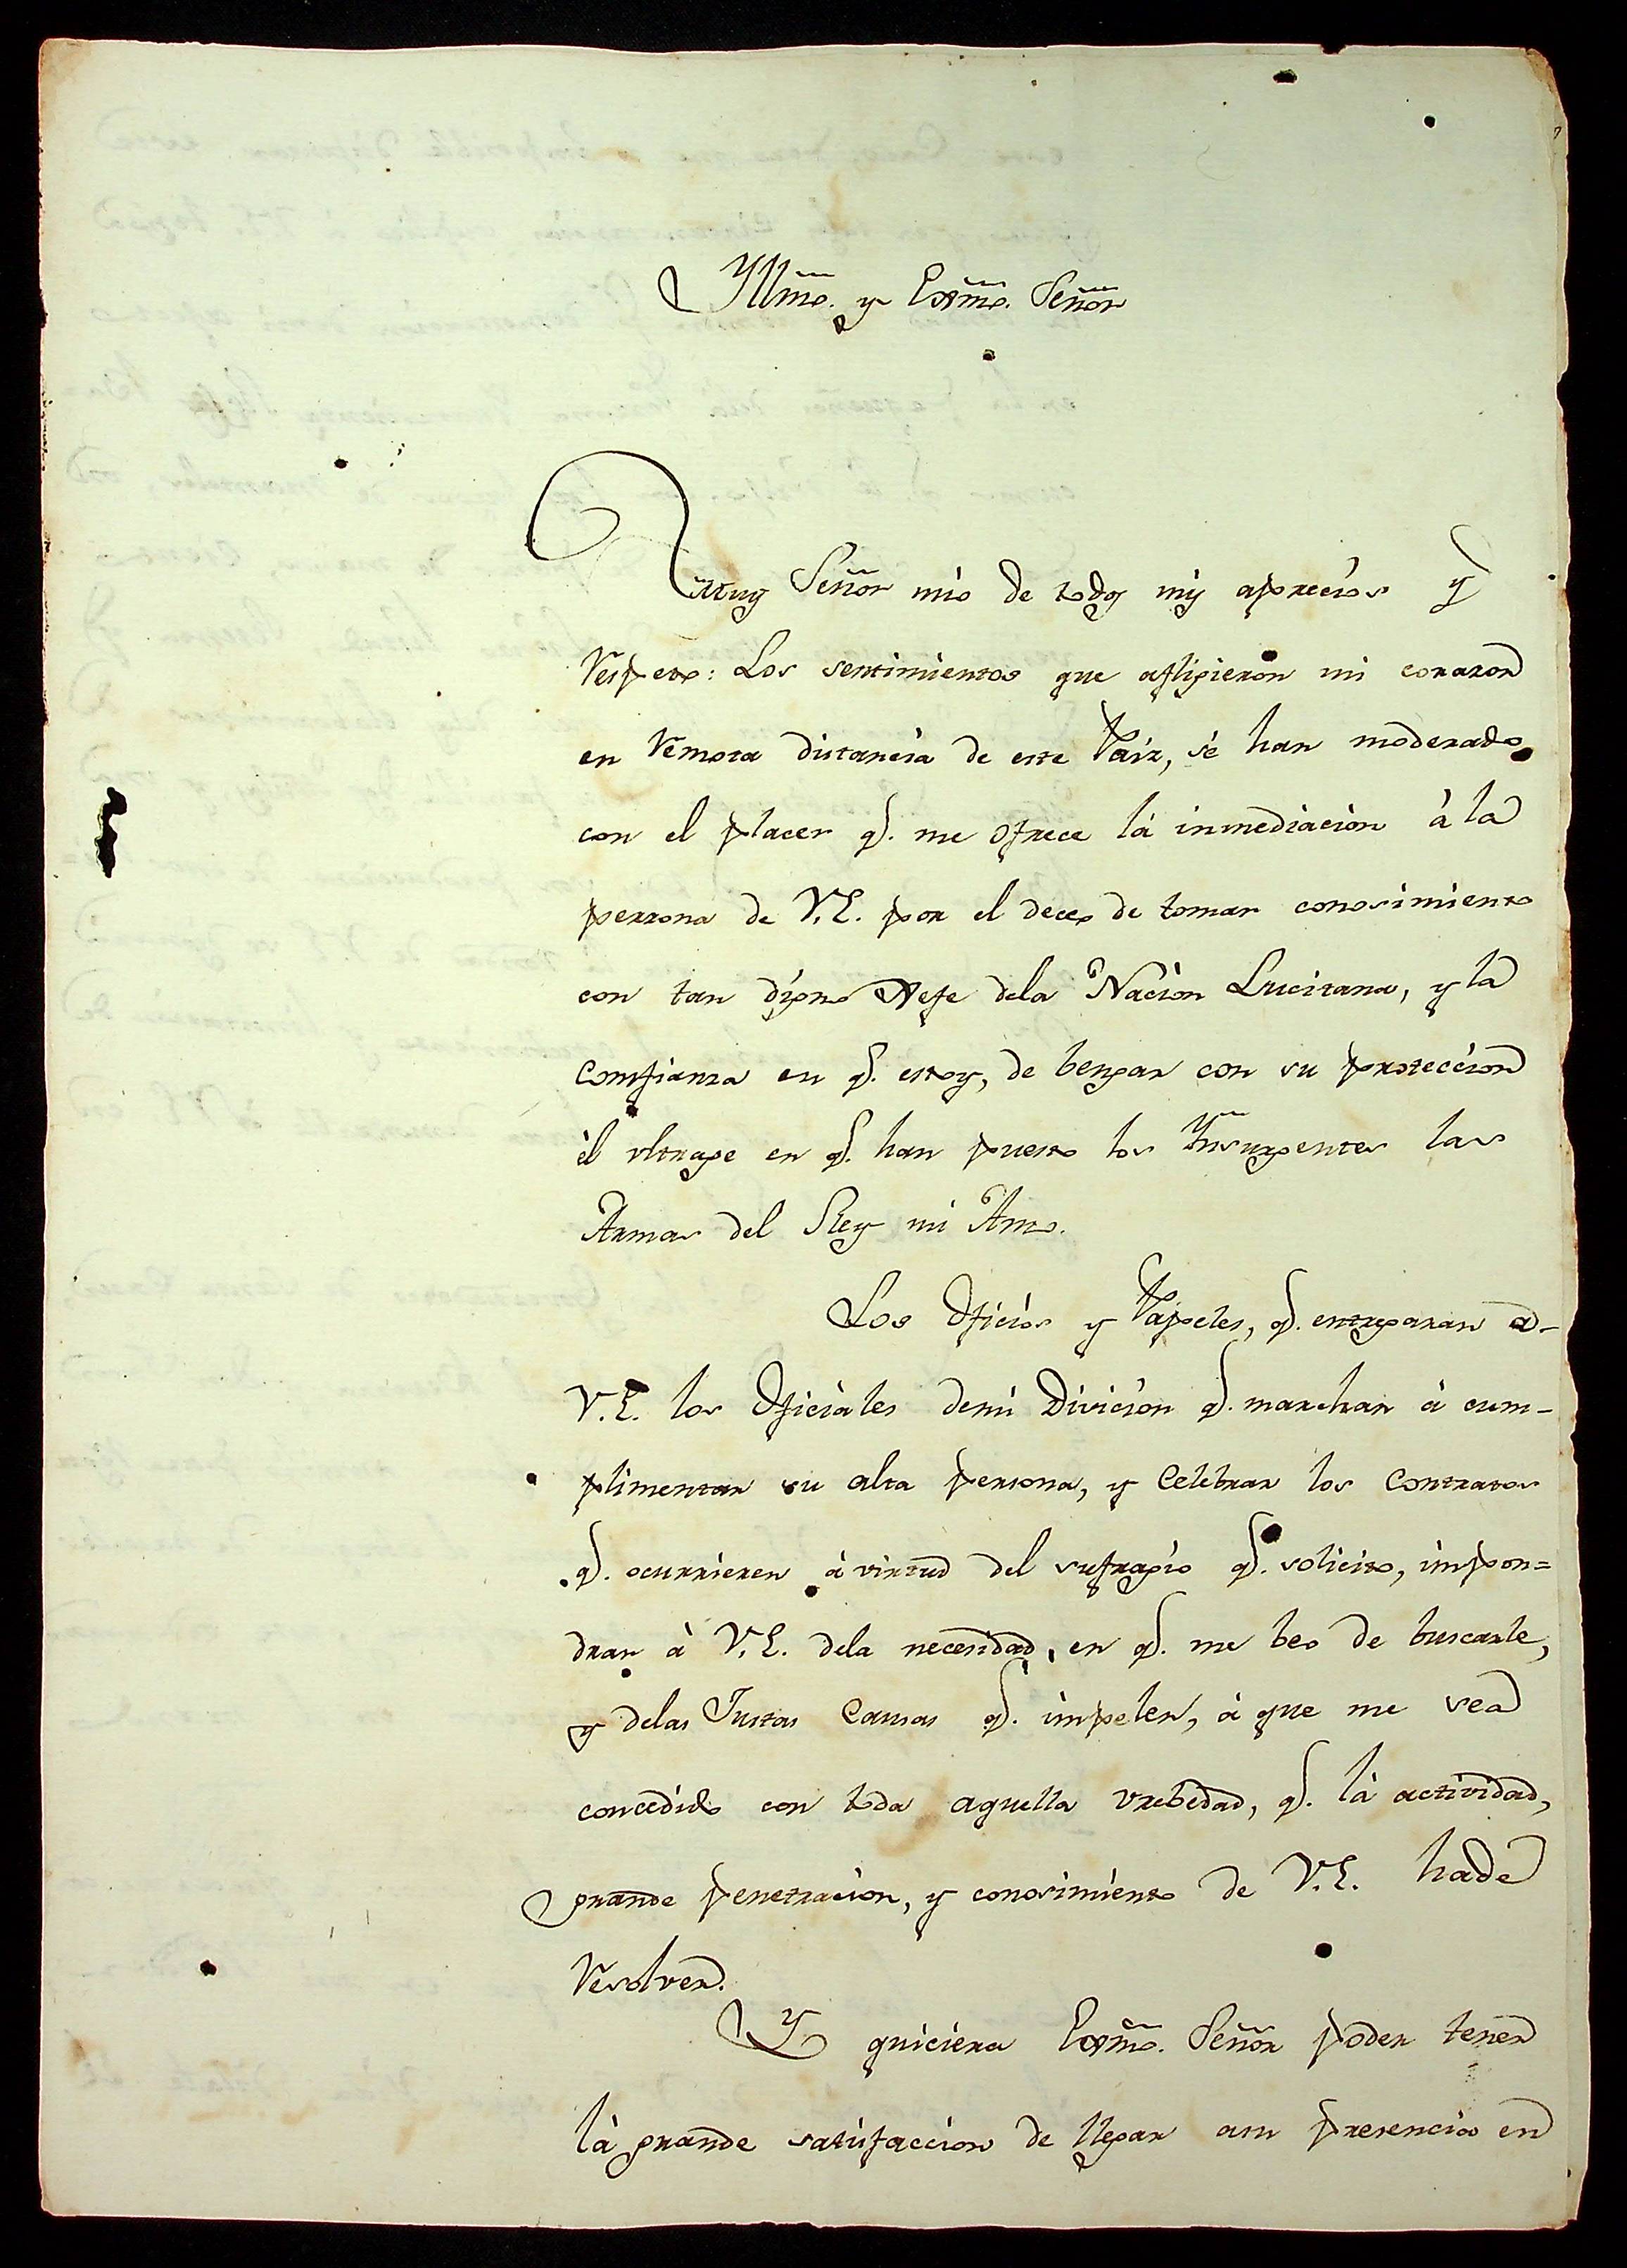 Yllmo. y Exmo. Señor
Muy Señor mio de todo my aprecio y
Respeto: Los sentimientos que afligieron mi corazon
en Remota distancia de este Paiz, sè han moderado
con el placer q. me ofrece là inmediacion à la
perzona de V.E. por el deceo de tomar conosimiento
con tan digno Xefe dela Nacion Lucitana, y la
comfianza en q. estoy, de bengar con su proteccion
èl ultrage en q. han puesto los Ynsurgentes las
Armas del Rey mi Amo.
Los Oficios y Papeles, q. entregaran a-
V.E. los Oficiales demi Divicion q. marchan à cum-
plimentar su alta persona, y Celebrar los Contratos
q. ocurrieren à virtud del sufragio q. solicito, impon=
dran à V.E. dela necesidad, en q. me beo de buscarle,
y delas Justas Causas q. impelen, à que me vea
concedido con toda aquella vrebedad, q. là actividad,
grande penetracion, y conosimiento de V.E. hade
Resolver.
Y quiciera Exmo. Señor poder tener
là grande satisfaccion de llegar asu presencia en